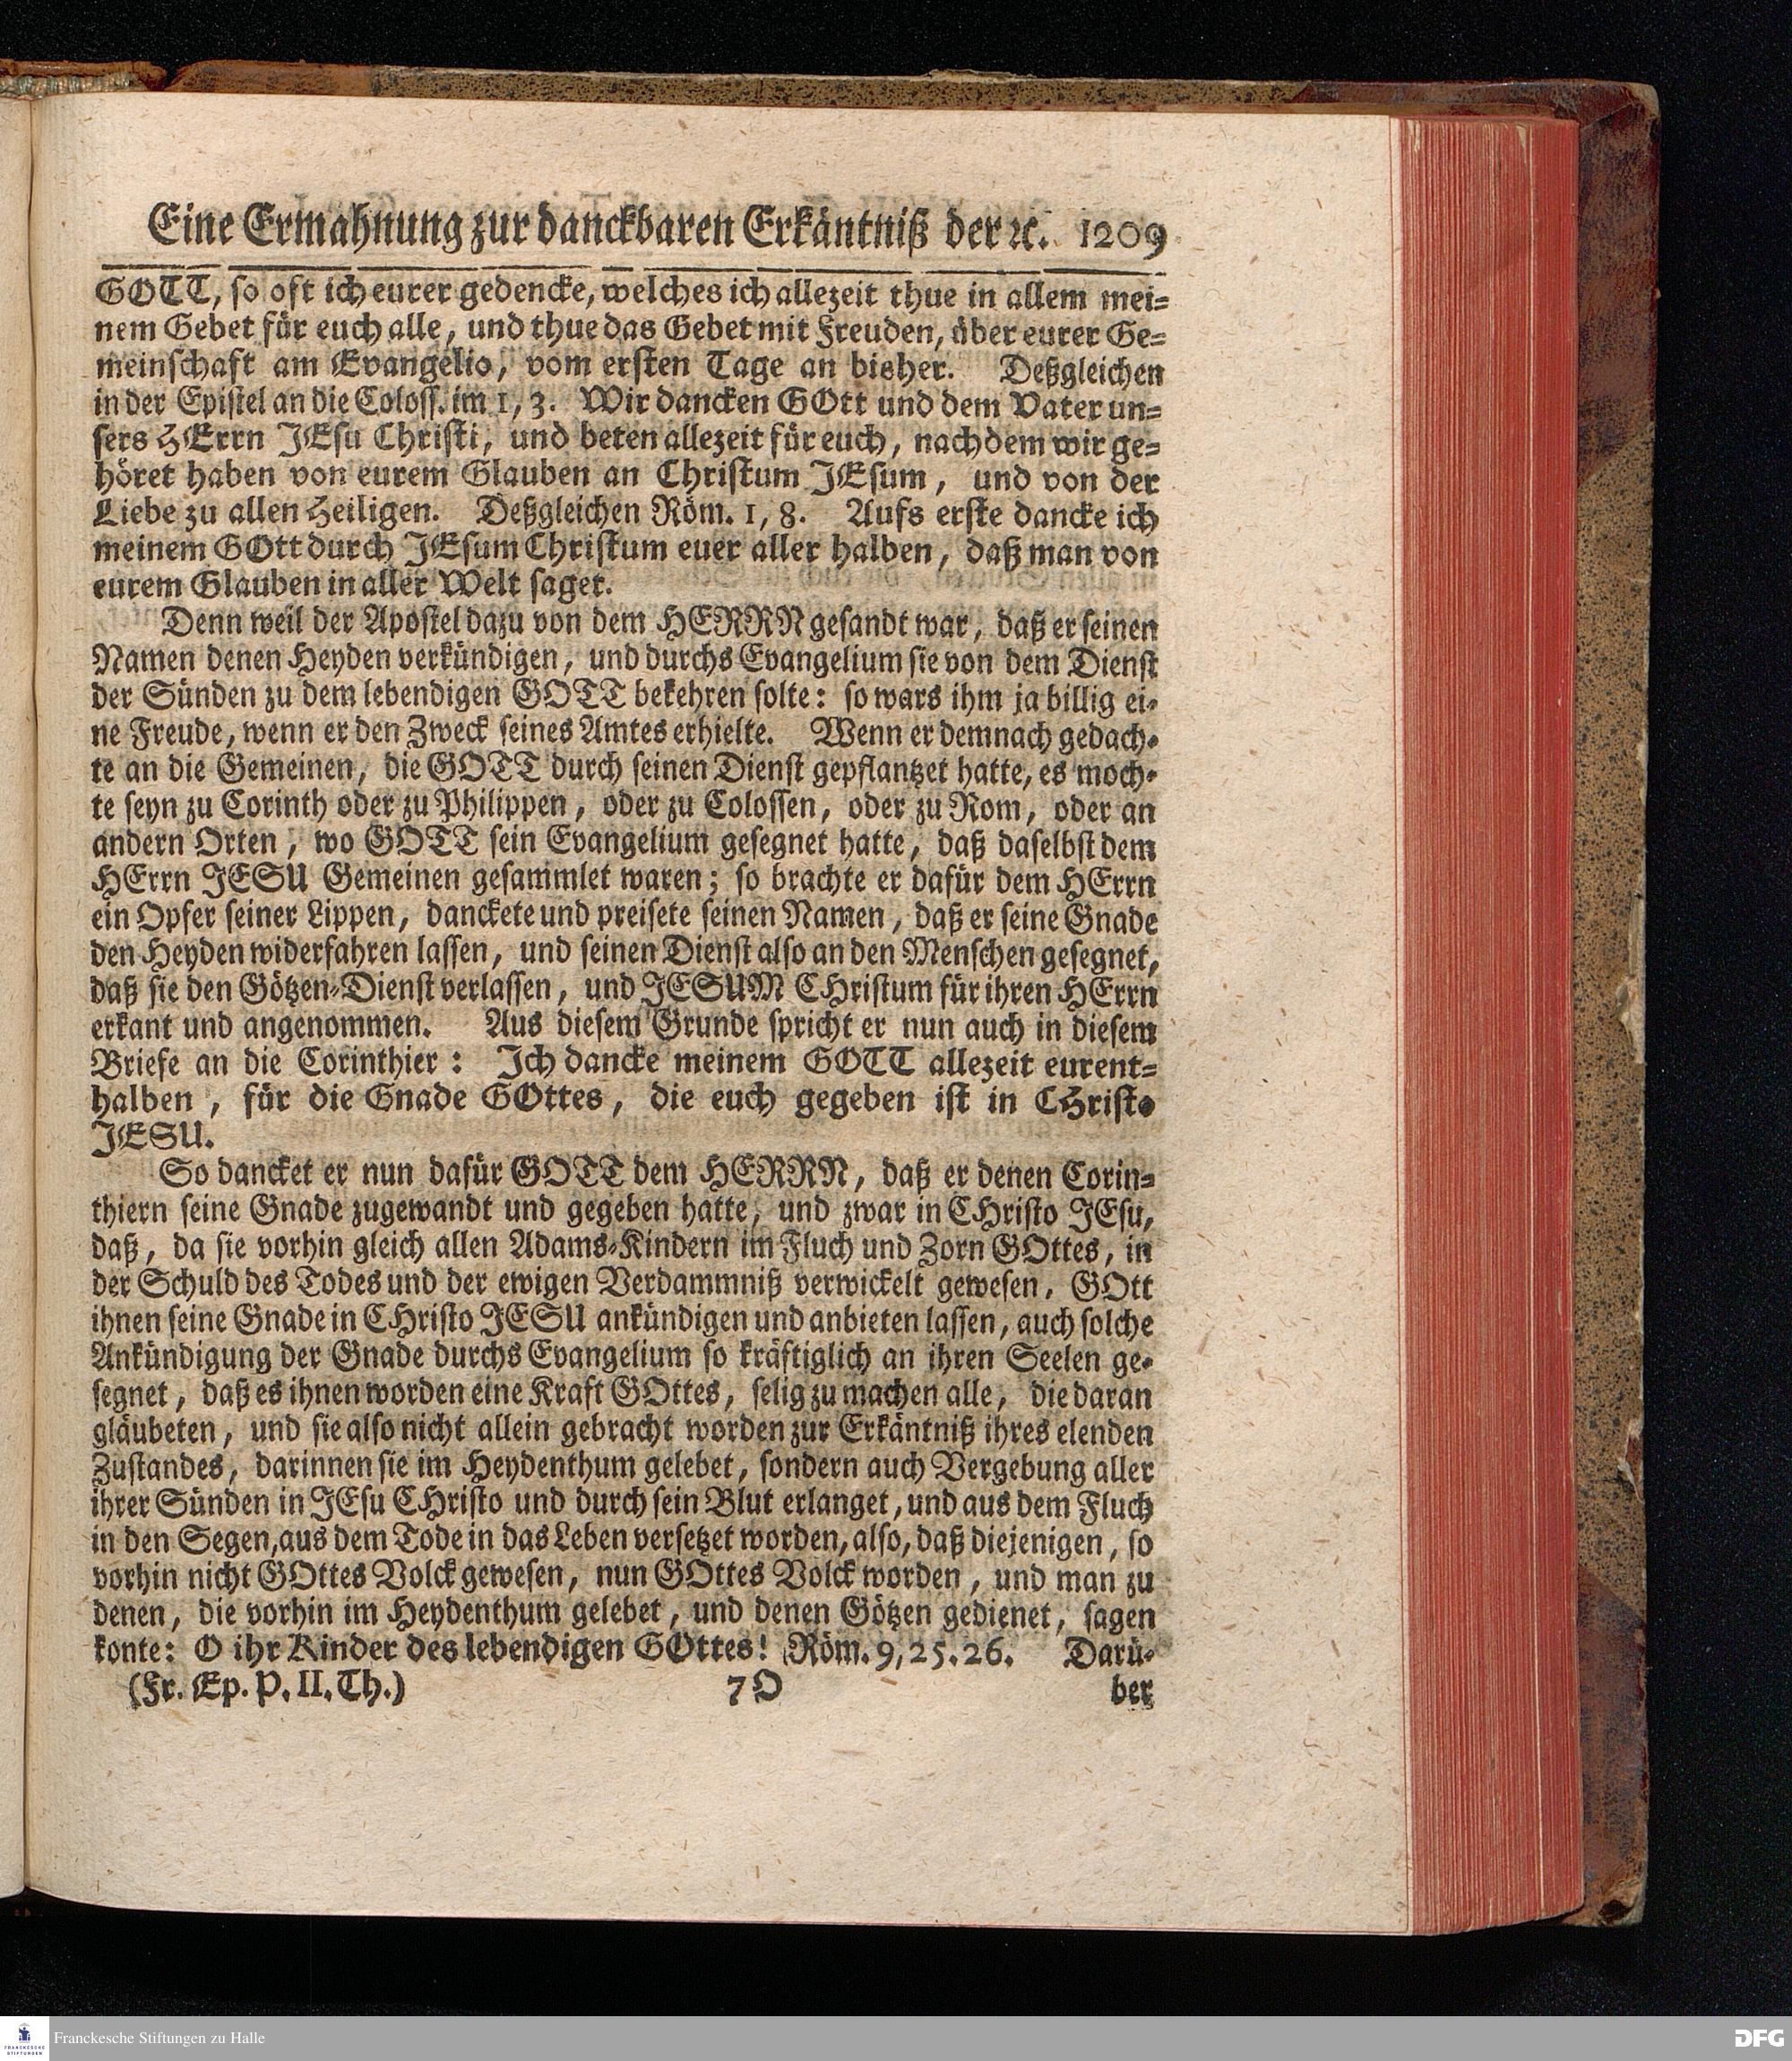 Eine Ermahnung zur danckbaren Erkäntniß der ꝛc. 1209
GOTT, so oft ich eurer gedencke, welches ich allezeit thue in allem mei=
nem Gebet für euch alle, und thue das Gebet mit Freuden, über eurer Ge=
meinschaft am Evangelio, vom ersten Tage an bisher. Deßgleichen
in der Epistel an die Coloss. im 1, 3. Wir dancken GOtt und dem Vater un=
sers HErrn JEsu Christi, und beten allezeit für euch, nachdem wir ge=
höret haben von eurem Glauben an Christum JEsum, und von der
Liebe zu allen Heiligen. Deßgleichen Röm. 1, 8. Aufs erste dancke ich
meinem GOtt durch JEsum Christum euer aller halben, daß man von
eurem Glauben in aller Welt saget.
Denn weil der Apostel dazu von dem HERRN gesandt war, daß er seinen
Namen denen Heyden verkündigen, und durchs Evangelium sie von dem Dienst
der Sünden zu dem lebendigen GOTT bekehren solte: so wars ihm ja billig ei=
ne Freude, wenn er den Zweck seines Amtes erhielte. Wenn er demnach gedach=
te an die Gemeinen, die GOTT durch seinen Dienst gepflantzet hatte, es moch=
te seyn zu Corinth oder zu Philippen, oder zu Colossen, oder zu Rom, oder an
andern Orten, wo GOTT sein Evangelium gesegnet hatte, daß daselbst dem
HErrn JESU Gemeinen gesammlet waren; so brachte er dafür dem HErrn
ein Opfer seiner Lippen, danckete und preisete seinen Namen, daß er seine Gnade
den Heyden widerfahren lassen, und seinen Dienst also an den Menschen gesegnet,
daß sie den Götzen=Dienst verlassen, und JESUM CHristum für ihren HErrn
erkant und angenommen. Aus diesem Grunde spricht er nun auch in diesem
Briefe an die Corinthier: Ich dancke meinem GOTT allezeit eurent=
halben, für die Gnade GOttes, die euch gegeben ist in CHristo
JESU.
So dancket er nun dafür GOTT dem HERRN, daß er denen Corin=
thiern seine Gnade zugewandt und gegeben hatte, und zwar in CHristo JEsu,
daß, da sie vorhin gleich allen Adams=Kindern im Fluch und Zorn GOttes, in
der Schuld des Todes und der ewigen Verdammniß verwickelt gewesen, GOtt
ihnen seine Gnade in CHristo JESU ankündigen und anbieten lassen, auch solche
Ankündigung der Gnade durchs Evangelium so kräftiglich an ihren Seelen ge=
segnet, daß es ihnen worden eine Kraft GOttes, selig zu machen alle, die daran
gläubeten, und sie also nicht allein gebracht worden zur Erkäntniß ihres elenden
Zustandes, darinnen sie im Heydenthum gelebet, sondern auch Vergebung aller
ihrer Sünden in JEsu CHristo und durch sein Blut erlanget, und aus dem Fluch
in den Segen, aus dem Tode in das Leben versetzet worden, also, daß diejenigen, so
vorhin nicht GOttes Volck gewesen, nun GOttes Volck worden, und man zu
denen, die vorhin im Heydenthum gelebet, und denen Götzen gedienet, sagen
konte: O ihr Kinder des lebendigen GOttes! Röm. 9, 25. 26. Darü=
(Fr. Ep. P. II. Th.) 7 O ber
FRANCKESCHE STIFTUNGEN
Franckesche Stiftungen zu Halle
DFG